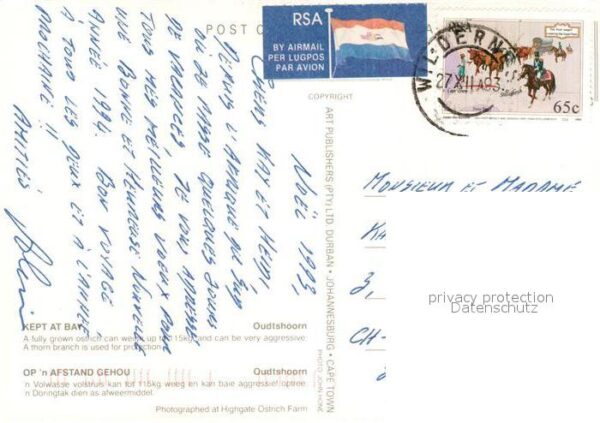 POST C
RSA
BY AIRMAIL
PER LUGPOS
PAR AVION
WILDERN
27 XII 93
65c
COPYRIGHT
NOËL 1993,
CHERS KAY ET HEIDI,
DEPUIS L'AFRIQUE DU SUD
OÙ JE PASSE QUELQUES JOURS
DE VACANCES, JE VOUS ADRESSE
TOUS MES MEILLEURS VOEUX POUR
UNE BONNE ET HEUREUSE NOUVELLE
ANNÉE 1994. BON VOYAGE
À TOUS LES DEUX ET À L'ANNÉE
PROCHAINE !!
AMITIÉS
ART PUBLISHERS (PTY) LTD. DURBAN • JOHANNESBURG • CAPE TOWN
PHOTO: JOHN HONE
MONSIEUR ET MADAME
KA
3,
CH-
privacy protection
Datenschutz
KEPT AT BAY Oudtshoorn
A fully grown ostrich can weigh up to 115kg and can be very aggressive.
A thorn branch is used for protection.
OP 'n AFSTAND GEHOU Oudtshoorn
'n Volwasse volstruis kan tot 115kg weeg en kan baie aggressief optree.
'n Doringtak dien as afweermiddel.
Photographed at Highgate Ostrich Farm